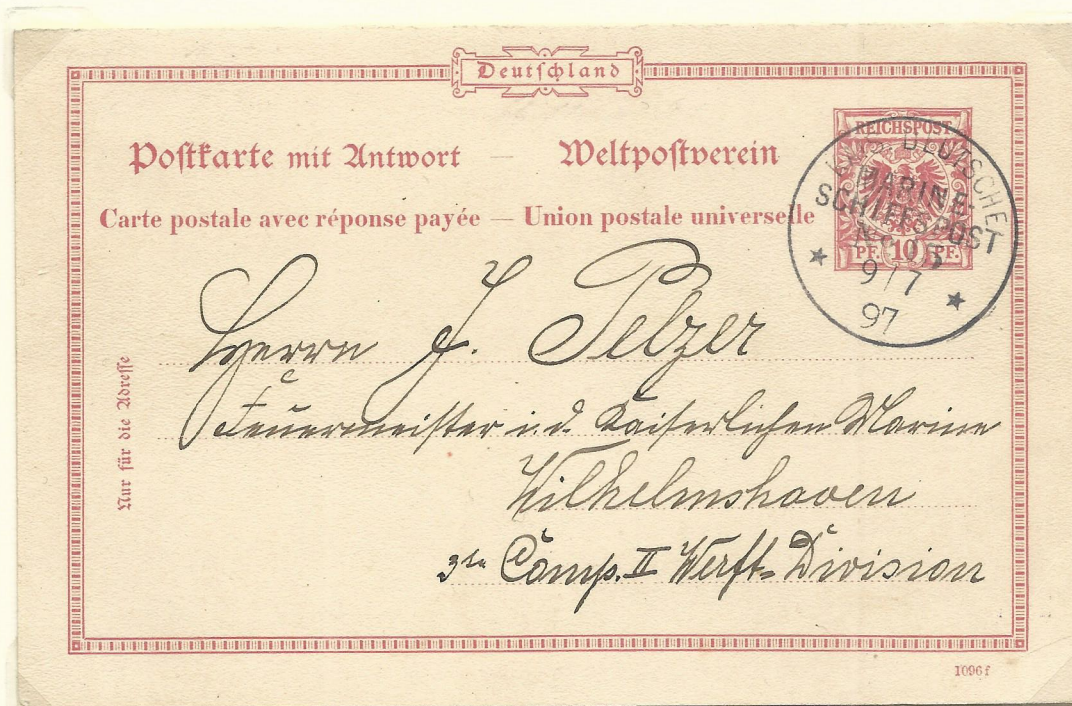 Deutschland
Postkarte mit Antwort — Weltpostverein
Carte postale avec réponse payée — Union postale universelle
REICHSPOST
PF. 10 PF.
DEUTSCHE
MARINE-
SCHIFFSPOST
No
9/7
97
Herrn J. Pelzer
Feuermeister i. d. Kaiserlichen Marine
Wilhelmshaven
3te Comp. II Werft-Division
Nur für die Adresse
1096f